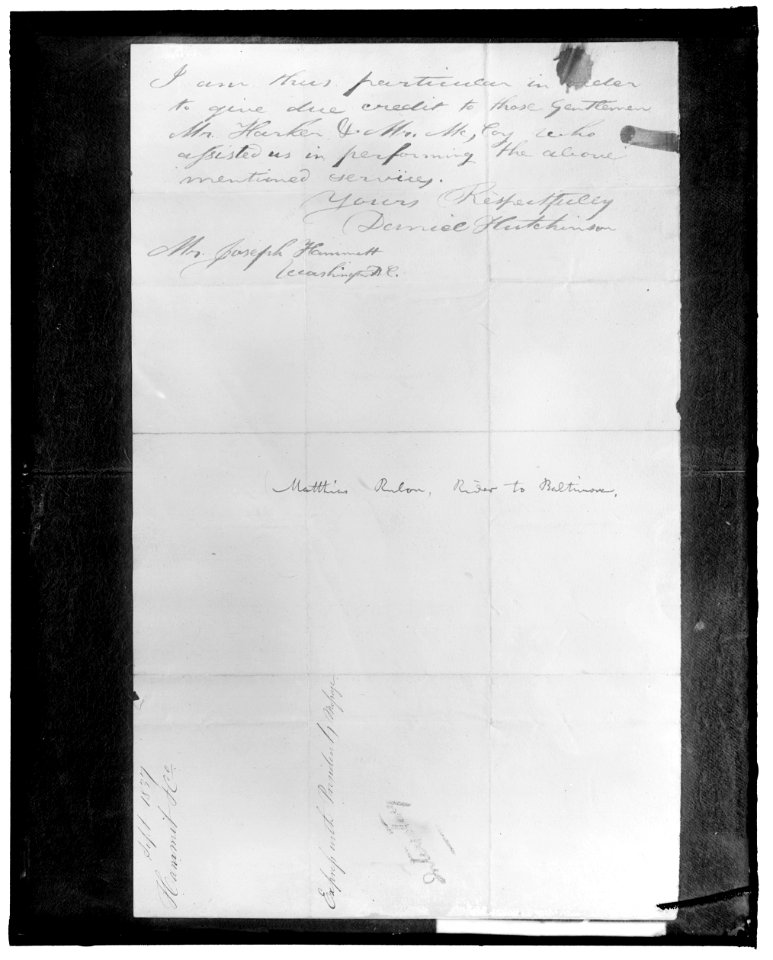 I am thus particular in order
to give due credit to those Gentlemen
Mr. Harker & Mr. McCoy who
assisted us in performing the above
mentioned services.
Yours Respectfully
Daniel Hutchinson
Mr. Joseph Hammitt
Washington D.C.
Matthias Rulon, Rider to Baltimore.
Sept 1837
Hammit &Co
Express with Presidents Message